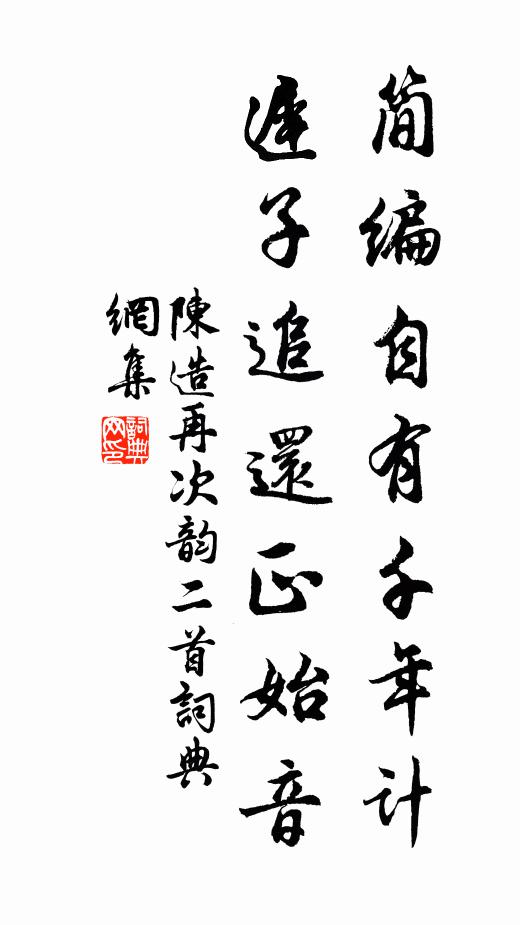 简編自有千年計
遲子追還正始音
陳造再次韵二首詞典
網集
詞典
网印